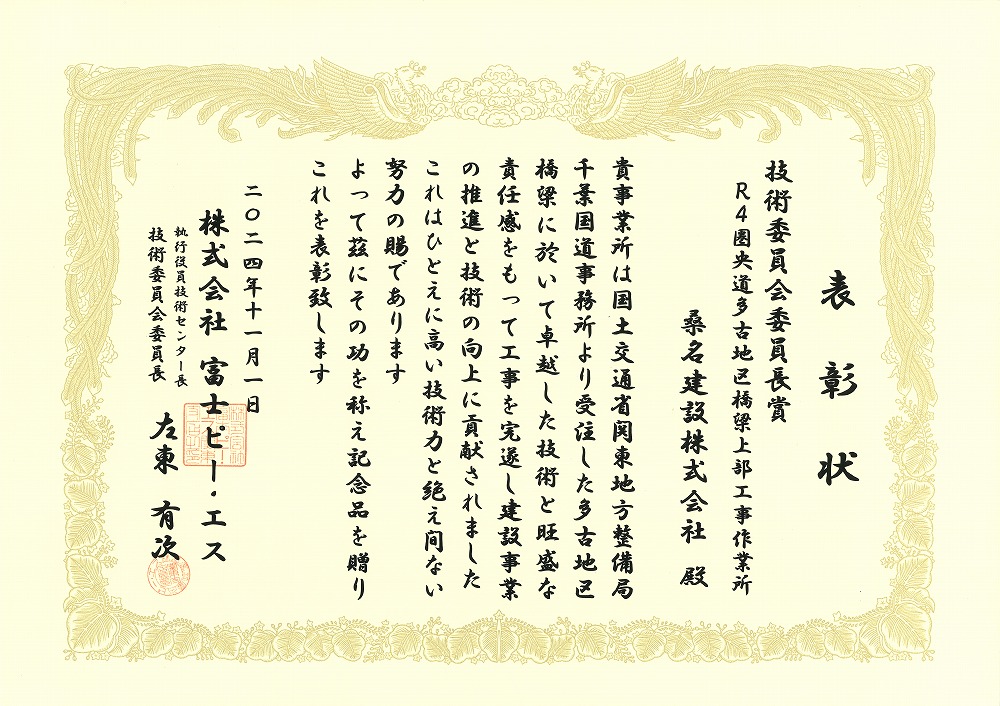 表彰状
技術委員会委員長賞
R4圏央道多古地区橋梁上部工事作業所
桑名建設株式会社 殿
貴事業所は国土交通省関東地方整備局
千葉国道事務所より受注した多古地区
橋梁に於いて卓越した技術と旺盛な
責任感をもって工事を完遂し建設事業
の推進と技術の向上に貢献されました
これはひとえに高い技術力と絶え間ない
努力の賜であります
よって茲にその功を称え記念品を贈り
これを表彰致します
二〇二四年十一月一日
株式会社 富士ピー・エス
執行役員技術センター長
技術委員会委員長
左東 有次